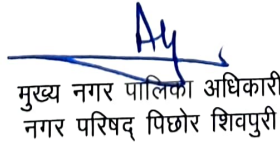 मुख्य नगर पालिका अधिकारी
नगर परिषद् पिछोर शिवपुरी